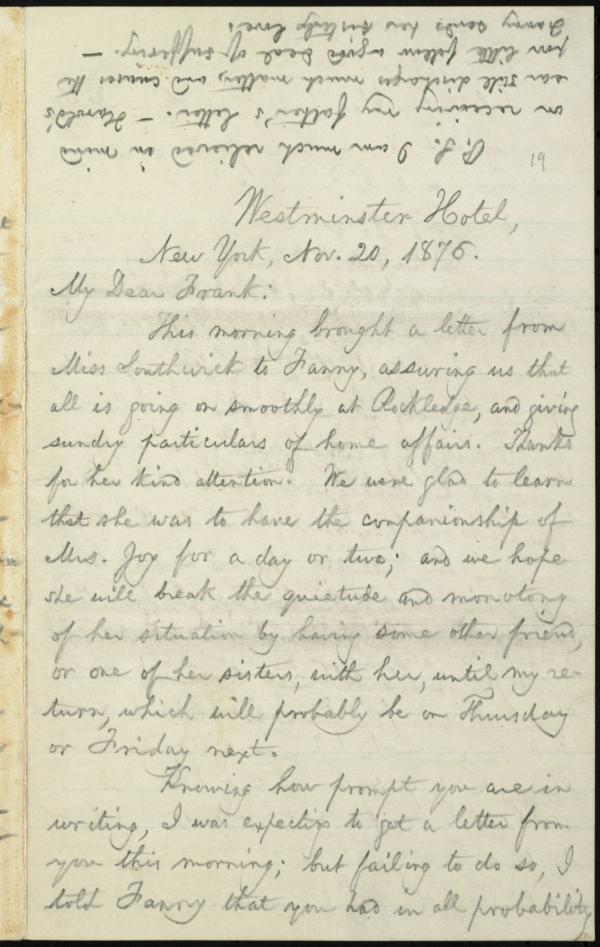 P. S. I am much relieved in mind
on receiving my father's letter. — Harold's
ear still discharges much matter, and causes the
poor little fellow a good deal of suffering. —
Fanny sends her sisterly love.
19
Westminster Hotel,
New York, Nov. 20, 1876.
My Dear Frank:
This morning brought a letter from
Miss Southwick to Fanny, assuring us that
all is going on smoothly at Rockledge, and giving
sundry particulars of home affairs. Thanks
for her kind attention. We were glad to learn
that she was to have the companionship of
Mrs. Joy for a day or two; and we hope
she will break the quietude and monotony
of her situation by having some other friend,
or one of her sisters, with her, until my re-
turn, which will probably be on Thursday
or Friday next.
Knowing how prompt you are in
writing, I was expecting to get a letter from
you this morning; but failing to do so, I
told Fanny that you had in all probability